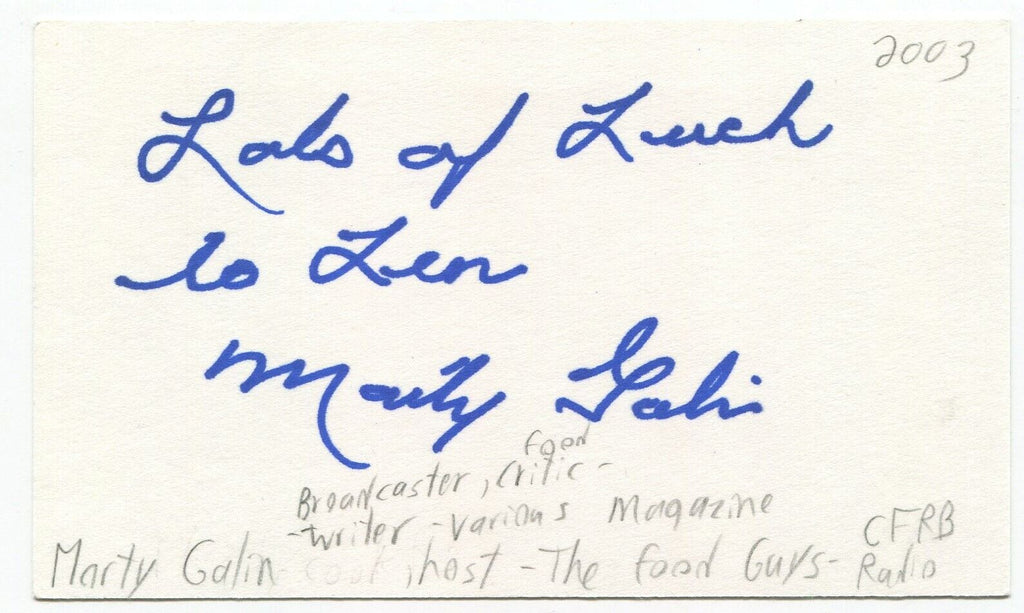 2003
Lots of Luck
to Len
Marty Galin
Food
Broadcaster, Critic -
- writer - various Magazine
Marty Galin cook, host - The Food Guys - CFRB Radio